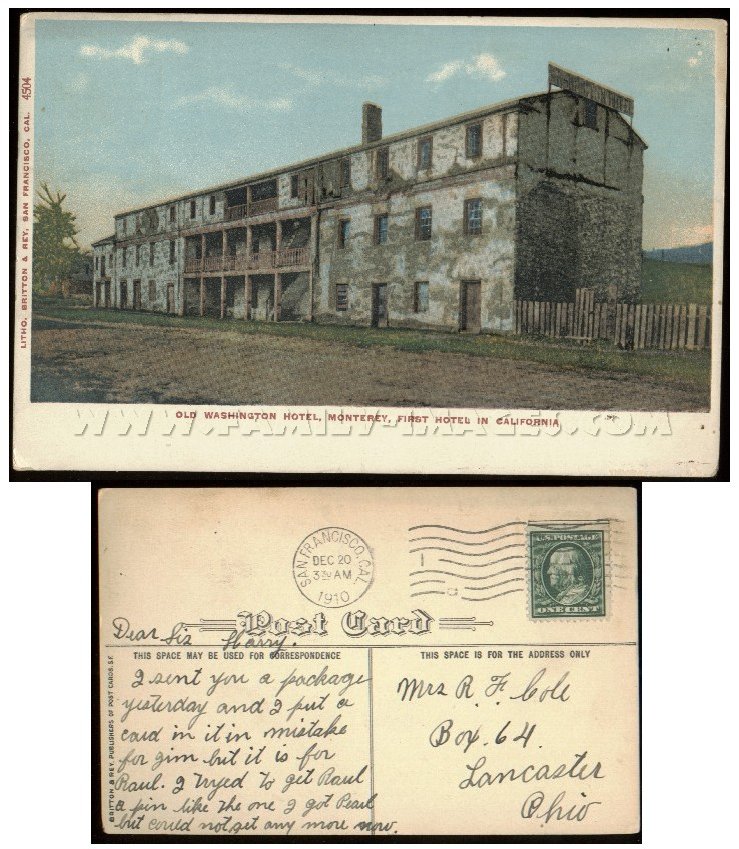 LITHO. BRITTON & REY, SAN FRANCISCO, CAL. 4504
WASHINGTON HOTEL
OLD WASHINGTON HOTEL, MONTEREY, FIRST HOTEL IN CALIFORNIA
WWW.FAMILY-IMAGES.COM
SAN FRANCISCO, CAL.
DEC 20
3 30 AM
1910
U.S. POSTAGE
ONE CENT
Post Card
Dear Siz Harry.
THIS SPACE MAY BE USED FOR CORRESPONDENCE
THIS SPACE IS FOR THE ADDRESS ONLY
BRITTON & REY, PUBLISHERS OF POST CARDS, S.F.
I sent you a package
yesterday and I put a
card in it in mistake
for gim but it is for
Raul. I tryed to get Raul
a pin like the one I got Pearl
but could not get any more now.
Mrs R. F. Cole
Box. 64.
Lancaster
Ohio